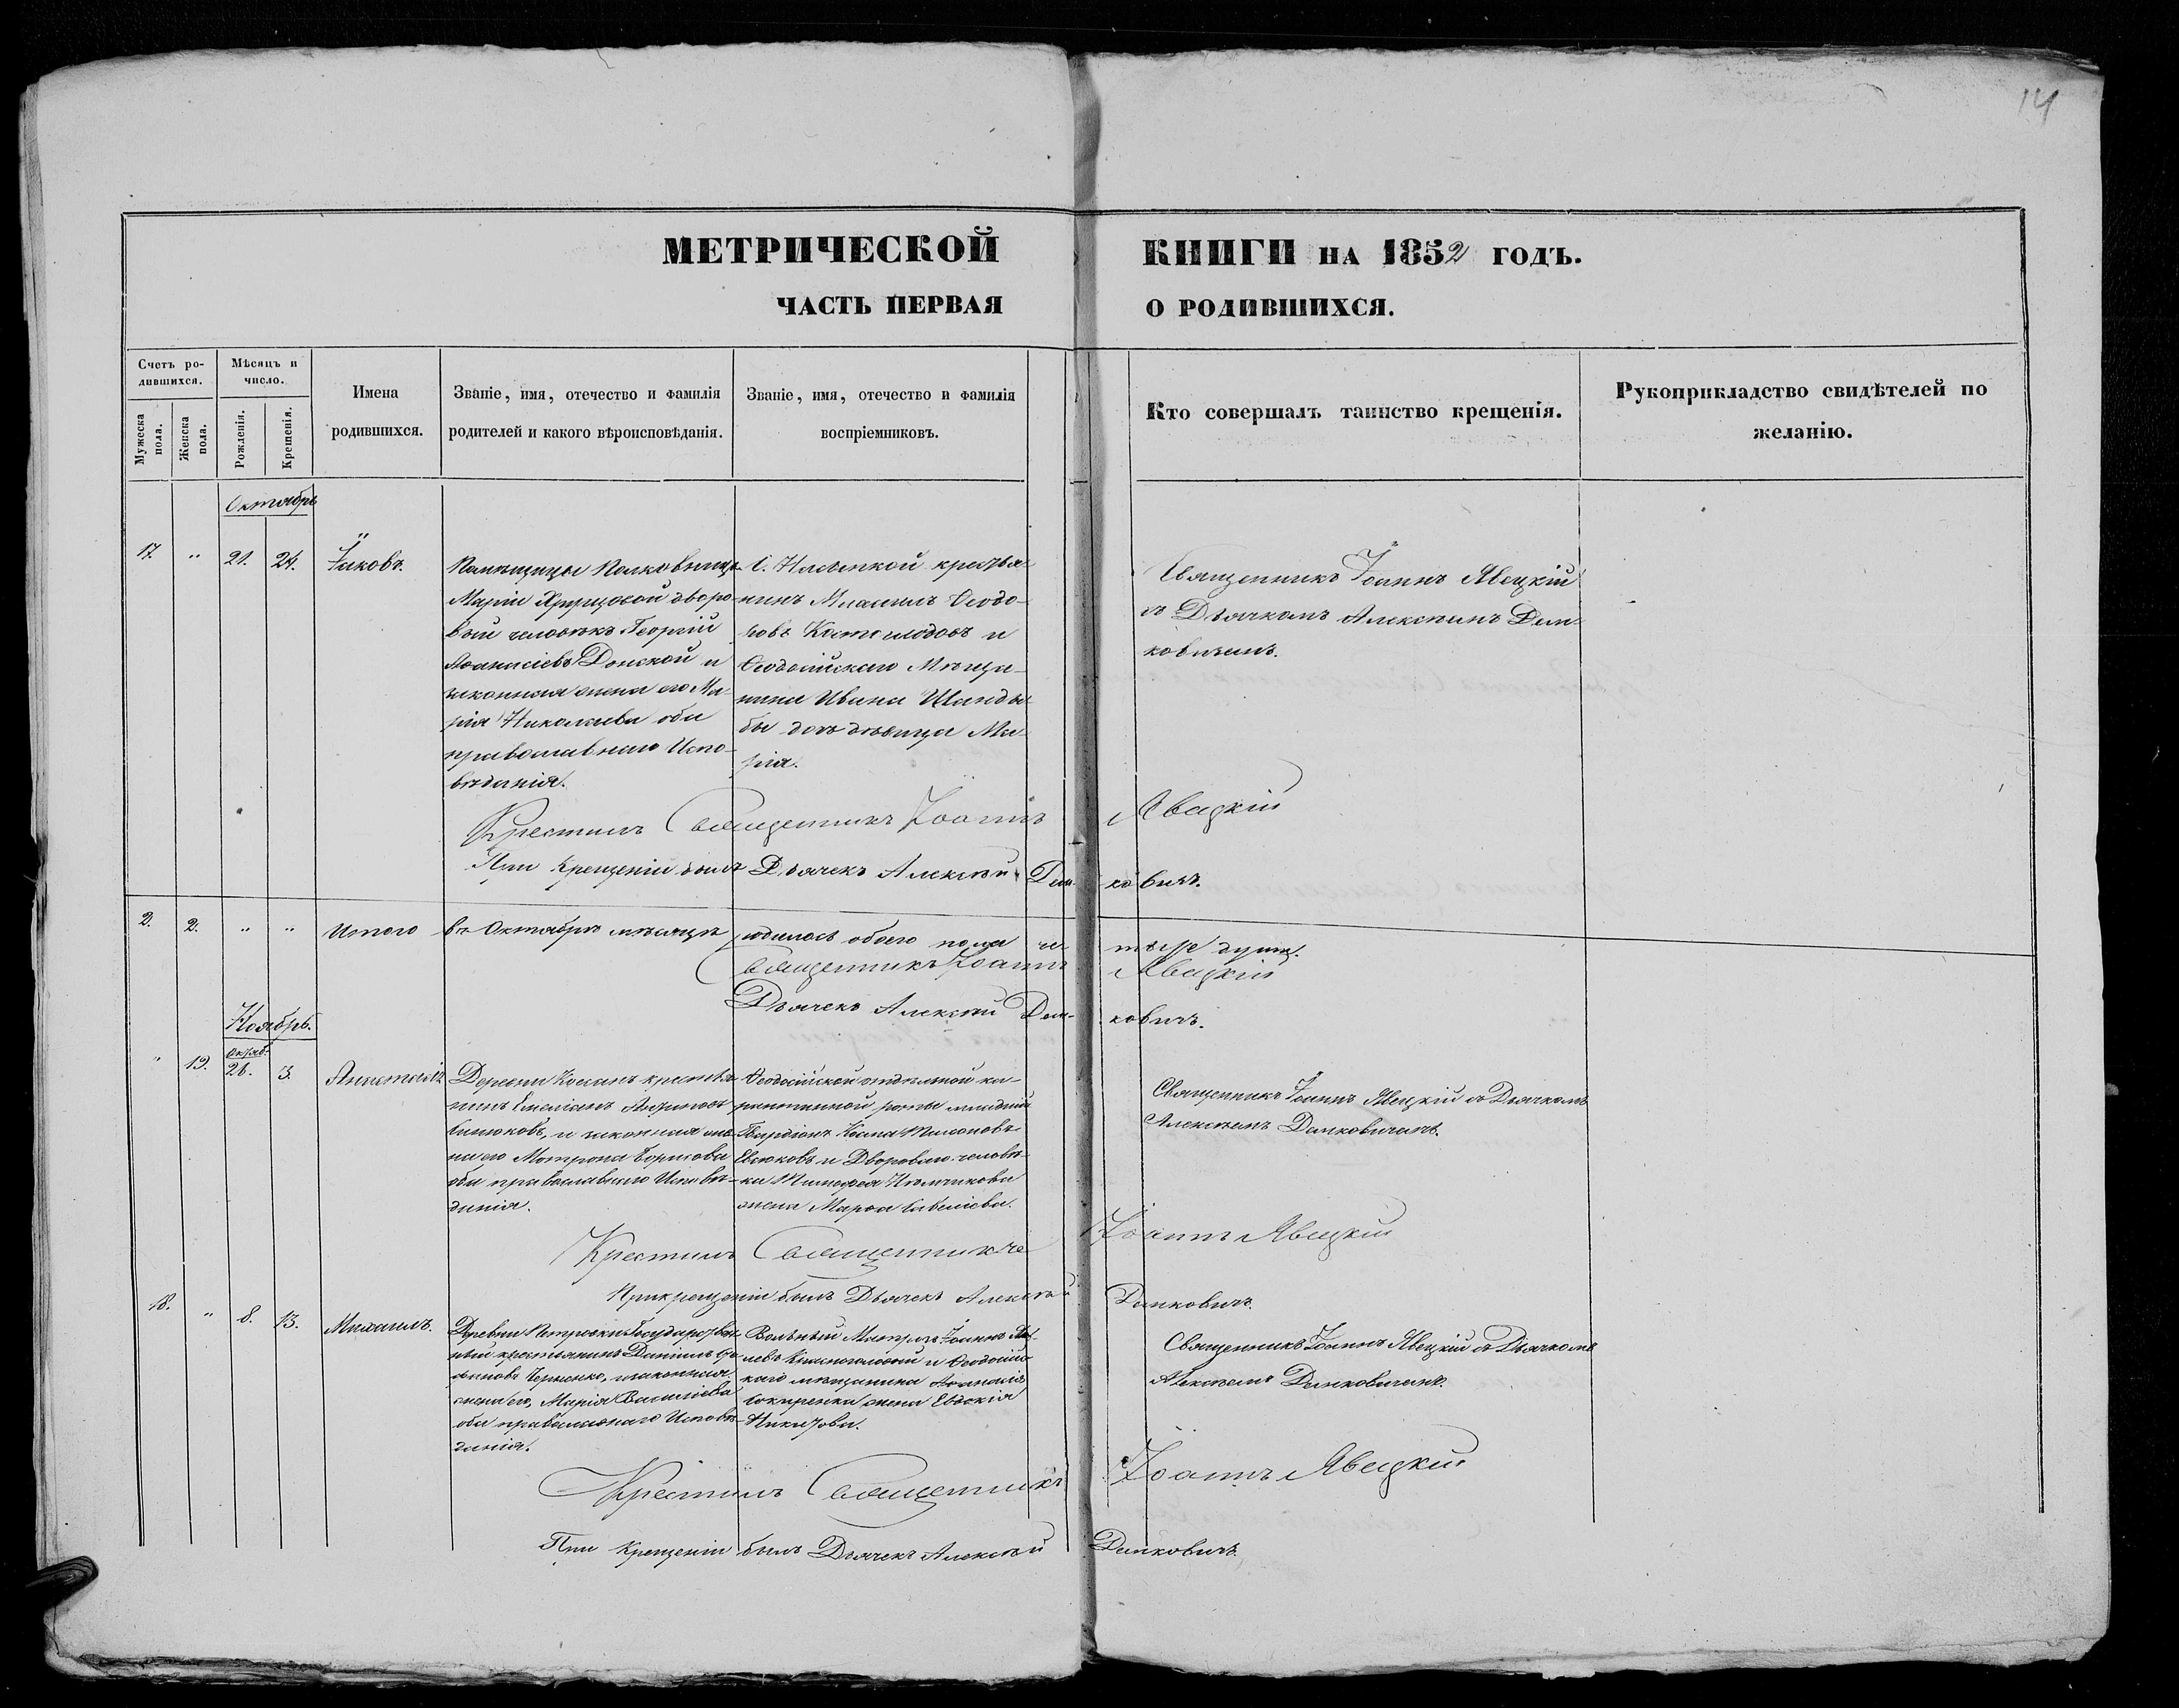 14
МЕТРИЧЕСКОЙ КНИГИ НА 1852 ГОДЪ.
ЧАСТЬ ПЕРВАЯ О РОДИВШИХСЯ.
Счетъ ро-
дившихся.
Мужеска пола.
Женска пола.
Мѣсяцъ и
число.
Рожденія.
Крещенія.
Имена
родившихся.
Званіе, имя, отечество и фамилія
родителей и какого вѣроисповѣданія.
Званіе, имя, отечество и фамилія
воспріемниковъ.
Кто совершалъ таинство крещенія.
Рукоприкладство свидѣтелей по
желанію.
Октябрь
17. " 21. 24. Іаковъ.
Помѣщицы Полковницы
Маріи дворо-
вый человѣкъ Георгій
Аѳанасіевъ Донской и
законная жена его Ма-
рія Николаева оба
православнаго Испо-
вѣданія.
С. крестья-
нинъ Михаилъ Ѳеодо-
ровъ и
Ѳеодосійскаго Мѣща-
нина Ивана Шанды-
бы дочь дѣвица Ма-
рія.
Священникъ Іоаннъ Явецкій
съ Дьячкомъ Алексѣемъ Дем-
ковичемъ.
Крестилъ Священникъ Іоаннъ Явецкій
При Крещеніи былъ Дьячекъ Алексѣй Дем-ковичъ.
2. 2. " " Итого въ Октябрѣ мѣсяцѣ родилось обоего пола че-тыре душъ.
Священникъ Іоаннъ Явецкій
Дьячекъ Алексѣй Дем-ковичъ.
Ноябрь.
Октяб.
" 19. 28. 3. Анастасія
Деревни крестья-
нинъ Емеліанъ
и законная же-
на его Мотрона Борисова
оба православнаго Исповѣ-
данія.
Ѳеодосійской отдѣльной ка-
рантинной роты младшій
Гвардіонъ
и Двороваго человѣ-
ка Тимофея
жена Марѳа Савеліева.
Священникъ Іоаннъ Явецкій съ Дьячкомъ
Алексѣемъ Демковичемъ.
Крестилъ Священникъ Іоаннъ Явецкій
При крещеніи былъ Дьячекъ Алексѣй Демковичъ.
18. " 8. 13. Михаилъ.
Деревни Петровки Государствен-
ный крестьянинъ Даніилъ
Черненко, и законная
жена его, Марія Василіева
оба православнаго Исповѣ-
данія.
Вольный Матрозъ Іоаннъ
и Ѳеодосійс-
каго мѣщанина Аѳанасія
жена Евдокія
Священникъ Іоаннъ Явецкій съ Дьячкомъ
Алексѣемъ Демковичемъ.
Крестилъ Священникъ Іоаннъ Явецкій
При Крещеніи былъ Дьячекъ Алексѣй Демковичъ.